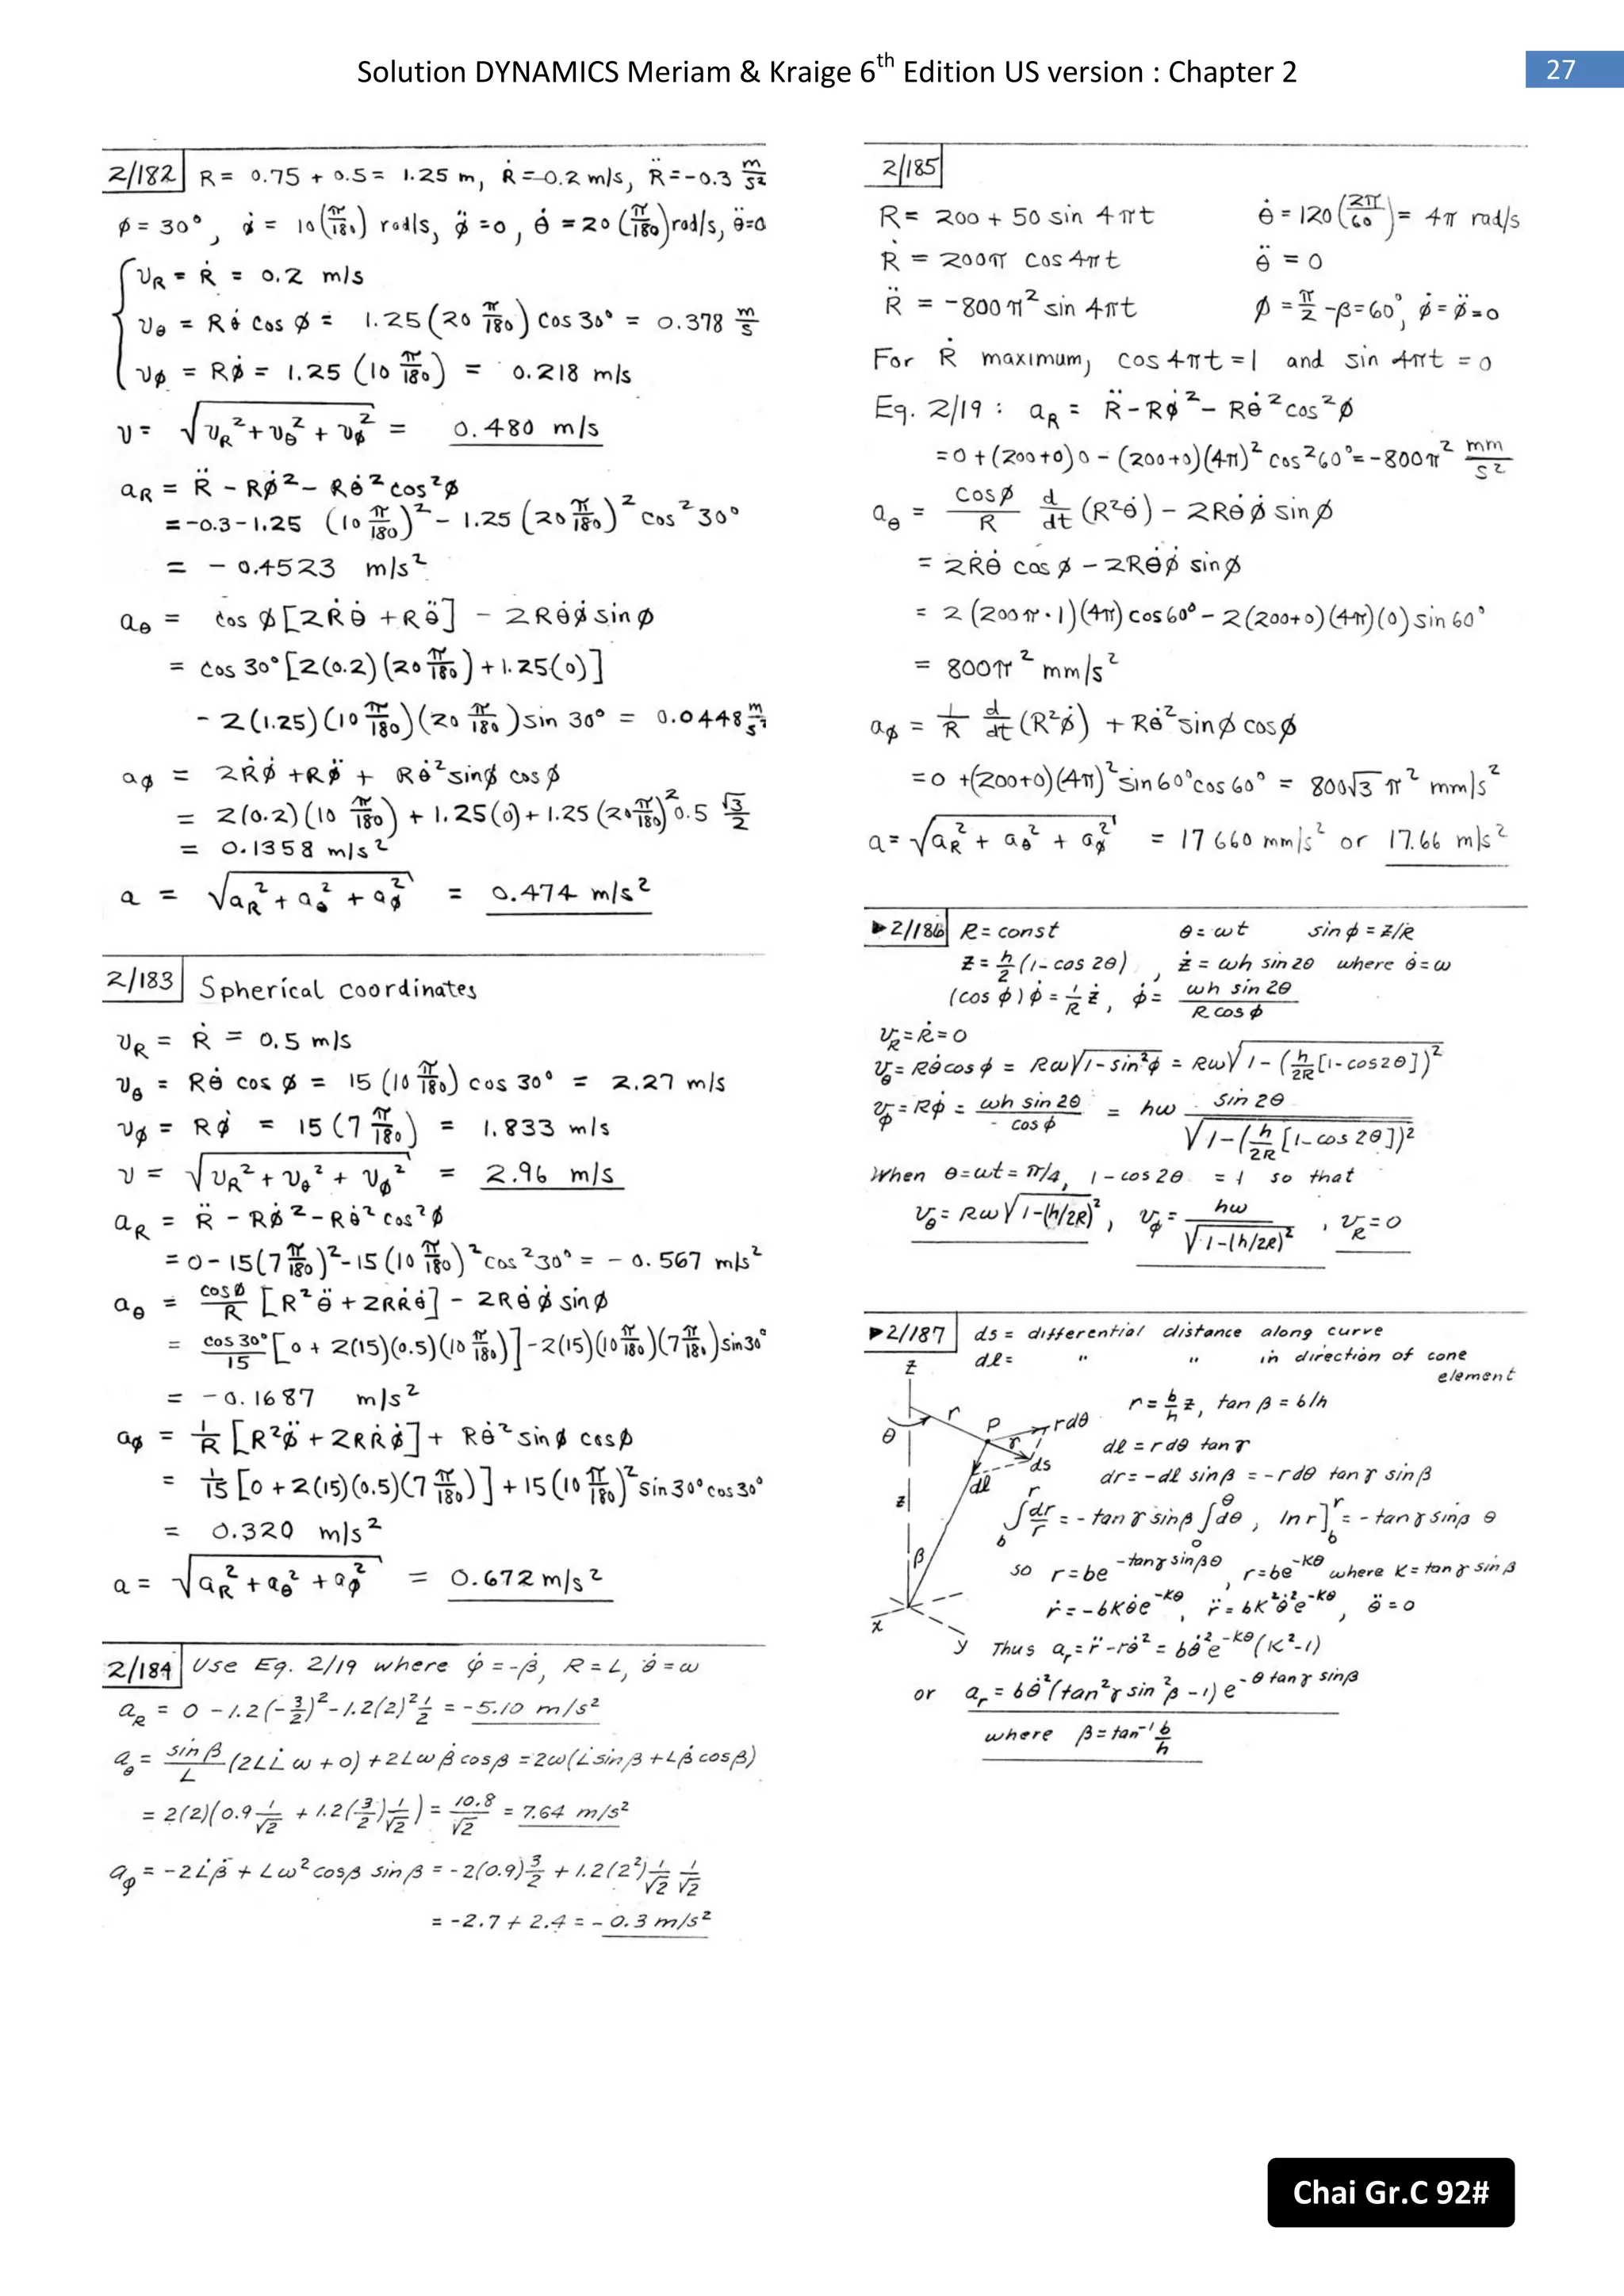 Solution DYNAMICS Meriam & Kraige 6th Edition US version : Chapter 2
27
2/182 R = 0.75 + 0.5 = 1.25 m, Ṙ = 0.2 m/s, R̈ = -0.3 m/s²
φ = 30°, φ̇ = 10(π/180) rad/s, φ̈ = 0, θ̇ = 20(π/180) rad/s, θ̈=0
v_R = Ṙ = 0.2 m/s
v_θ = Rθ̇ cos φ = 1.25(20 π/180) cos 30° = 0.378 m/s
v_φ = Rφ̇ = 1.25(10 π/180) = 0.218 m/s
v = √(v_R² + v_θ² + v_φ²) = 0.480 m/s
a_R = R̈ - Rφ̇² - Rθ̇² cos²φ
= -0.3 - 1.25 (10 π/180)² - 1.25 (20 π/180)² cos² 30°
= - 0.4523 m/s²
a_θ = cos φ [2Ṙθ̇ + Rθ̈] - 2Rθ̇φ̇ sin φ
= cos 30° [2(0.2)(20 π/180) + 1.25(0)]
- 2(1.25)(10 π/180)(20 π/180) sin 30° = 0.0448 m/s²
a_φ = 2Ṙφ̇ + Rφ̈ + Rθ̇² sinφ cos φ
= 2(0.2)(10 π/180) + 1.25(0) + 1.25(20 π/180)² 0.5 √3/2
= 0.1358 m/s²
a = √(a_R² + a_θ² + a_φ²) = 0.474 m/s²
2/183 Spherical coordinates
v_R = Ṙ = 0.5 m/s
v_θ = Rθ̇ cos φ = 15(10 π/180) cos 30° = 2.27 m/s
v_φ = Rφ̇ = 15(7 π/180) = 1.833 m/s
v = √(v_R² + v_θ² + v_φ²) = 2.96 m/s
a_R = R̈ - Rφ̇² - Rθ̇² cos²φ
= 0 - 15(7 π/180)² - 15(10 π/180)² cos² 30° = - 0.567 m/s²
a_θ = cosφ/R [R²θ̈ + 2RṘθ̇] - 2Rθ̇φ̇ sin φ
= cos 30°/15 [0 + 2(15)(0.5)(10 π/180)] - 2(15)(10 π/180)(7 π/180) sin 30°
= - 0.1687 m/s²
a_φ = 1/R [R²φ̈ + 2RṘφ̇] + Rθ̇² sin φ cos φ
= 1/15 [0 + 2(15)(0.5)(7 π/180)] + 15(10 π/180)² sin 30° cos 30°
= 0.320 m/s²
a = √(a_R² + a_θ² + a_φ²) = 0.672 m/s²
2/184 Use Eq. 2/19 where φ̇ = -β̇, R = L, θ̇ = ω
a_R = 0 - 1.2(-3/2)² - 1.2(2)² 1/2 = -5.10 m/s²
a_θ = sin β/L (2LL̇ω + 0) + 2Lωβ̇ cosβ = 2ω(L̇ sin β + Lβ̇ cos β)
= 2(2)(0.9 1/√2 + 1.2(3/2) 1/√2) = 10.8/√2 = 7.64 m/s²
a_φ = -2L̇β̇ + Lω² cosβ sin β = -2(0.9) 3/2 + 1.2(2²) 1/√2 1/√2
= -2.7 + 2.4 = - 0.3 m/s²
2/185
R = 200 + 50 sin 4πt θ̇ = 120(2π/60) = 4π rad/s
Ṙ = 200π cos 4πt θ̈ = 0
R̈ = -800π² sin 4πt φ = π/2 - β = 60°, φ̇ = φ̈ = 0
For Ṙ maximum, cos 4πt = 1 and sin 4πt = 0
Eq. 2/19 : a_R = R̈ - Rφ̇² - Rθ̇² cos²φ
= 0 + (200+0)0 - (200+0)(4π)² cos² 60° = -800π² mm/s²
a_θ = cosφ/R d/dt (R²θ̇) - 2Rθ̇φ̇ sin φ
= 2Ṙθ̇ cos φ - 2Rθ̇φ̇ sin φ
= 2(200π·1)(4π) cos 60° - 2(200+0)(4π)(0) sin 60°
= 800π² mm/s²
a_φ = 1/R d/dt (R²φ̇) + Rθ̇² sin φ cos φ
= 0 + (200+0)(4π)² sin 60° cos 60° = 800√3 π² mm/s²
a = √(a_R² + a_θ² + a_φ²) = 17 660 mm/s² or 17.66 m/s²
►2/186 R = const θ = ωt sin φ = z/R
z = h/2 (1 - cos 2θ), ż = ωh sin 2θ where θ̇ = ω
(cos φ)φ̇ = 1/R ż, φ̇ = ωh sin 2θ/R cos φ
v_R = Ṙ = 0
v_θ = Rθ̇ cos φ = Rω√(1 - sin²φ) = Rω√(1 - (h/2R [1 - cos 2θ])²)
v_φ = Rφ̇ = ωh sin 2θ/cos φ = hω sin 2θ/√(1 - (h/2R [1 - cos 2θ])²)
When θ = ωt = π/4, 1 - cos 2θ = 1 so that
v_θ = Rω√(1 - (h/2R)²), v_φ = hω/√(1 - (h/2R)²), v_R = 0
►2/187 ds = differential distance along curve
dℓ = " " in direction of cone
element
z
r = b/h z, tan β = b/h
r
P
rdθ
θ
γ
dℓ = r dθ tan γ
ds
dℓ
dr = -dℓ sin β = -r dθ tan γ sin β
z
∫_b^r dr/r = - tan γ sin β ∫_0^θ dθ, ln r]_b^r = - tan γ sin β θ
β
so r = be^(-tanγ sinβ θ), r = be^(-Kθ) where K = tan γ sin β
ṙ = -bKθ̇e^(-Kθ), r̈ = bK²θ̇²e^(-Kθ), θ̈ = 0
x
y
Thus a_r = r̈ - rθ̇² = bθ̇²e^(-Kθ)(K² - 1)
or a_r = bθ̇²(tan²γ sin²β - 1) e^(-θ tan γ sin β)
where β = tan⁻¹ b/h
Chai Gr.C 92#